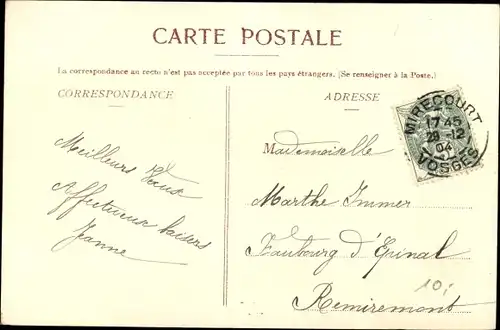 CARTE POSTALE
La correspondance au recto n'est pas acceptée par tous les pays étrangers. (Se renseigner à la Poste.)
CORRESPONDANCE
ADRESSE
MIRECOURT
17 45
29 -12
04
VOSGES
Meilleurs Vœux
Affectueux baisers
Jeanne
Mademoiselle
Marthe Immer
Faubourg d'Epinal
Remiremont
10